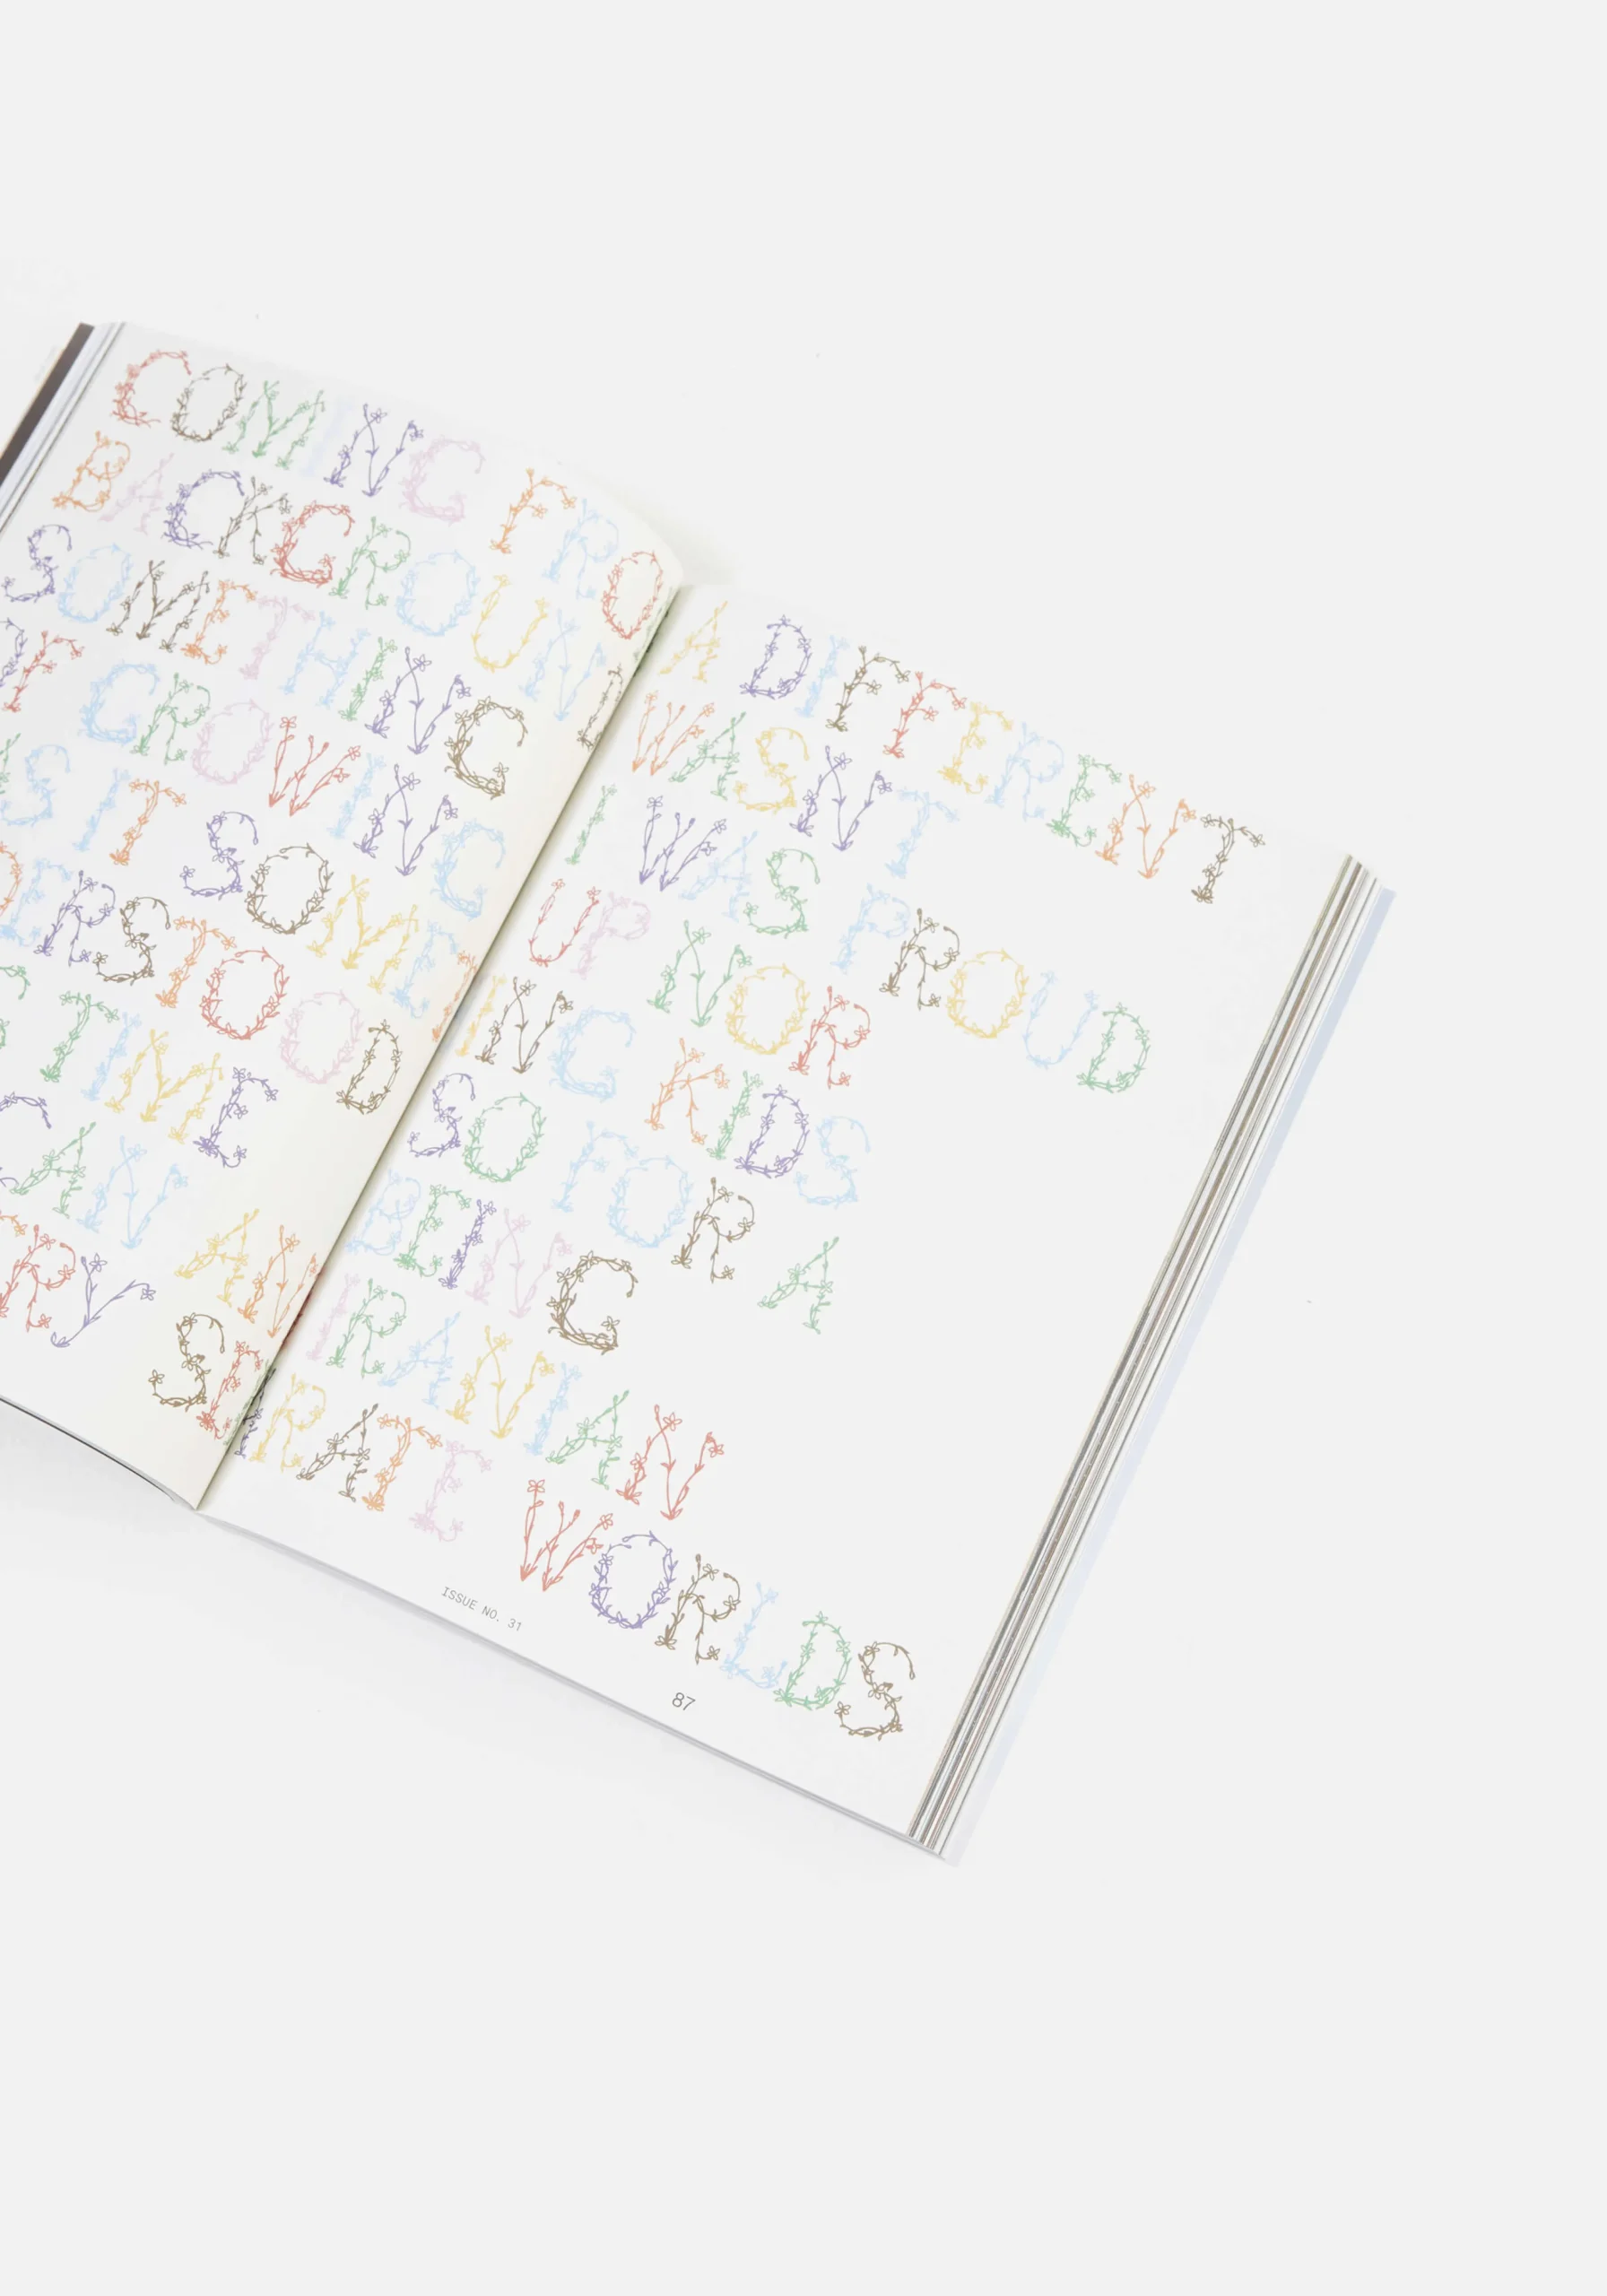 COMING FROM A DIFFERENT
BACKGROUND WASNT
SOMETHING I WAS PROUD
OF GROWING UP NOR
AS IT SOMETHING KIDS
ERSTOOD SO FOR A
TIME BEING
CAN AND IRANIAN
RY SEPARATE WORLDS
ISSUE NO. 31
87